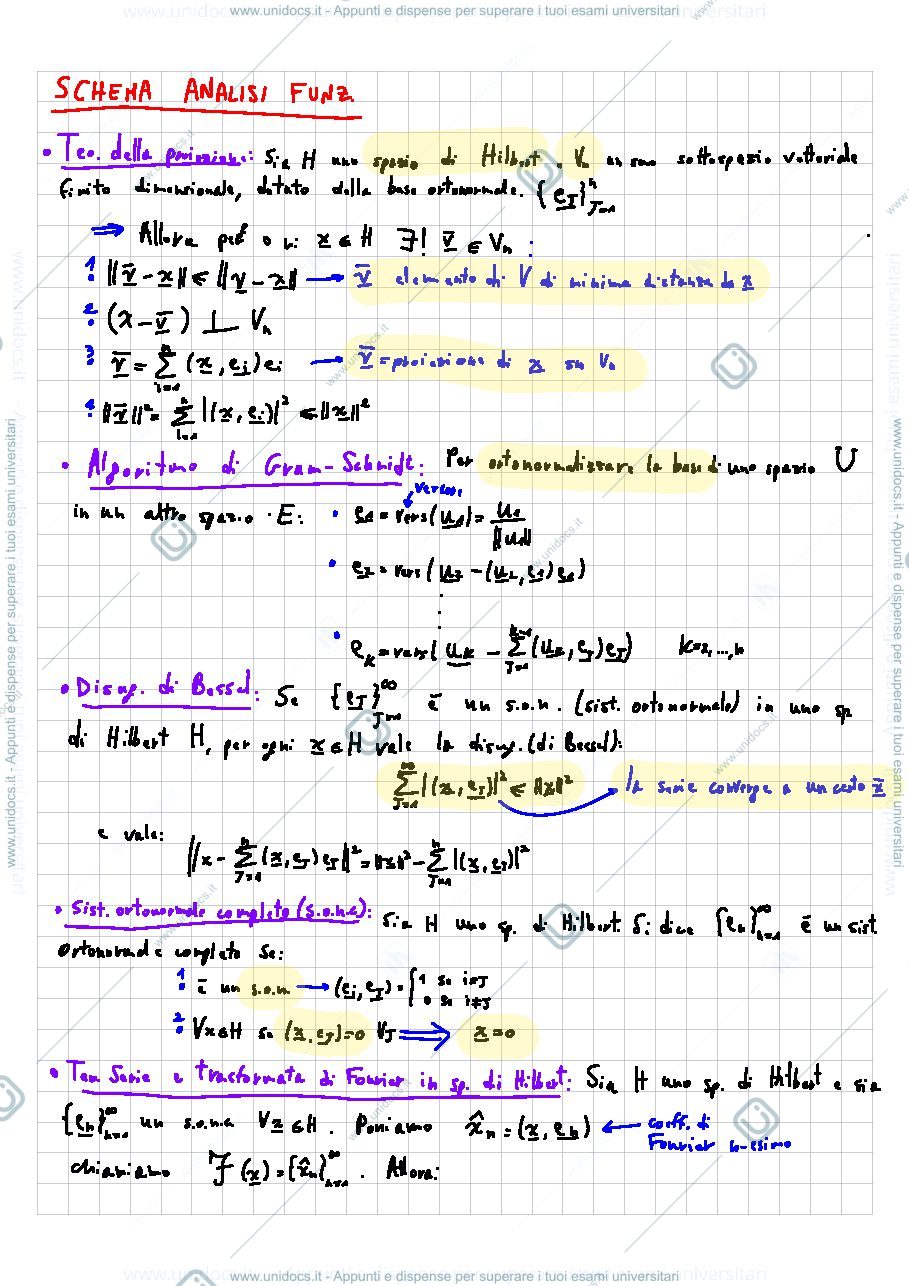 www.unidocs.it - Appunti e dispense per superare i tuoi esami universitari
SCHEMA ANALISI FUNZ.
• Teo. della proiezione: Sia H uno spazio di Hilbert e Vn un suo sottospazio vettoriale
finito dimensionale, dotato della base ortonormale. {e_J}^n_{J=1}
⇒ Allora per ogni x ∈ H ∃! v̄ ∈ Vn :
1. ‖v̄ - x‖ ≤ ‖v - x‖ → v̄ elemento di V di minima distanza da x
2. (x - v̄) ⊥ Vn
3. v̄ = Σ_{i=1}^n (x, e_i) e_i → v̄ = proiezione di x su Vn
4. ‖v̄‖² = Σ_{i=1}^n |(x, e_i)|² ≤ ‖x‖²
• Algoritmo di Gram-Schmidt: Per ortonormalizzare la base di uno spazio U
versore
in un altro spazio E: • e_1 = vers(u_1) = u_1 / ‖u_1‖
• e_2 = vers(u_2 - (u_2, e_1) e_1)
⋮
• e_k = vers(u_k - Σ_{J=1}^{k-1} (u_k, e_J) e_J) k=2,...,n
• Disug. di Bessel: Se {e_J}^∞_{J=1} è un s.o.n. (sist. ortonormale) in uno sp
di Hilbert H, per ogni x ∈ H vale la disug. (di Bessel):
Σ_{J=1}^∞ |(x, e_J)|² ≤ ‖x‖² → la serie converge a un certo x̄
e vale:
‖x - Σ_{J=1}^n (x, e_J) e_J‖² = ‖x‖² - Σ_{J=1}^n |(x, e_J)|²
• Sist. ortonormale completo (s.o.n.c): Sia H uno sp. di Hilbert. Si dice {e_n}^∞_{n=1} è un sist.
ortonormale completo se:
1. è un s.o.n → (e_i, e_J) = { 1 se i=J
0 se i≠J
2. ∀x∈H se (x, e_J)=0 ∀J ⇒ x=0
• Teo. Serie e trasformata di Fourier in sp. di Hilbert: Sia H uno sp. di Hilbert e sia
{e_n}^∞_{n=1} un s.o.n.c ∀x∈H. Poniamo x̂_n = (x, e_n) ← coeff. di
Fourier n-esimo
chiamiamo ℱ(x) = {x̂_n}^∞_{n=1}. Allora:
www.unidocs.it - Appunti e dispense per superare i tuoi esami universitari